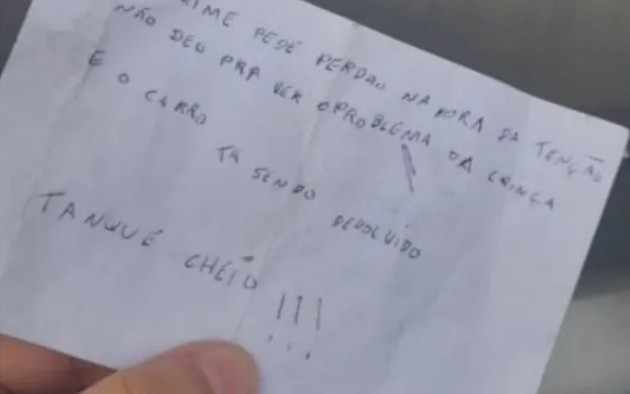 RIME PEDE PERDÃO NA HORA DA TENÇÃO
NÃO DEU PRA VER O PROBLEMA DA CRINÇA
E O CARRO TA SENDO DEVOLVIDO
TANQUE CHEIO !!!